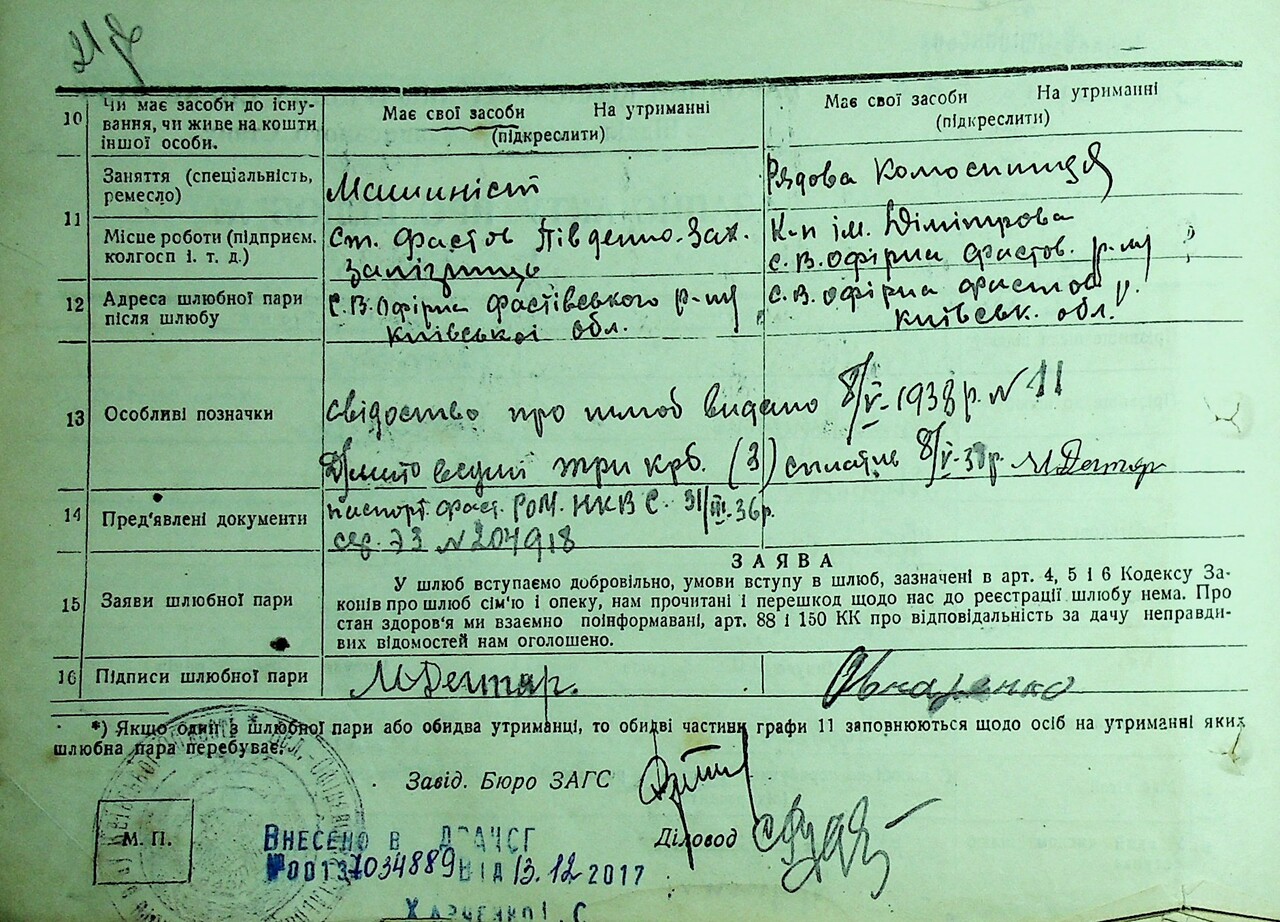 217
10 Чи має засоби до існу- Має свої засоби На утриманні Має свої засоби На утриманні
вання, чи живе на кошти (підкреслити) (підкреслити)
іншої особи.
11 Заняття (спеціальність, Машиніст Рядова колоспниця
ремесло)
Місце роботи (підприєм. Ст. Фастов Південно-Зах. К-п ім. Дімітрова
колгосп і. т. д.) залізниць с. В. Офірна Фастов. р-ну
12 Адреса шлюбної пари С. В. Офірна Фастівського р-ну с. В. Офірна Фастов р.
після шлюбу Київської обл. Київськ. обл.
13 Особливі позначки свідоство про шлюб видано 8/V-1938 р. N 11
три крб. (3) сплатив 8/V-38р. М Дегтяр
14 Пред'явлені документи паспорт Фаст. РОМ. НКВС. 31/III-36р.
сер. ЭЗ N 204918
ЗАЯВА
15 Заяви шлюбної пари У шлюб вступаємо добровільно, умови вступу в шлюб, зазначені в арт. 4, 5 і 6 Кодексу За-
конів про шлюб сім'ю і опеку, нам прочитані і перешкод щодо нас до реєстрації шлюбу нема. Про
стан здоров'я ми взаємно поінформавані, арт. 88 і 150 КК про відповідальність за дачу неправди-
вих відомостей нам оголошено.
16 Підписи шлюбної пари М Дегтяр. Овчаренко
*) Якщо один з шлюбної пари або обидва утриманці, то обидві частини графи 11 заповнюються щодо осіб на утриманні яких
шлюбна пара перебуває.
Завід. Бюро ЗАГС
М. П. Діловод
Внесено в ДРАЧСГ
№00137034889 від 13.12 2017
Харченко І. С